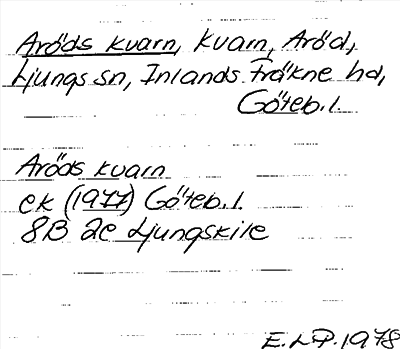 Aröds kvarn, kvarn, Aröd,
Ljungs sn, Inlands Fräkne hd,
Göteb. l.
Aröds kvarn
ek (1977) Göteb. l.
8B 2e Ljungskile
E.LP. 1978